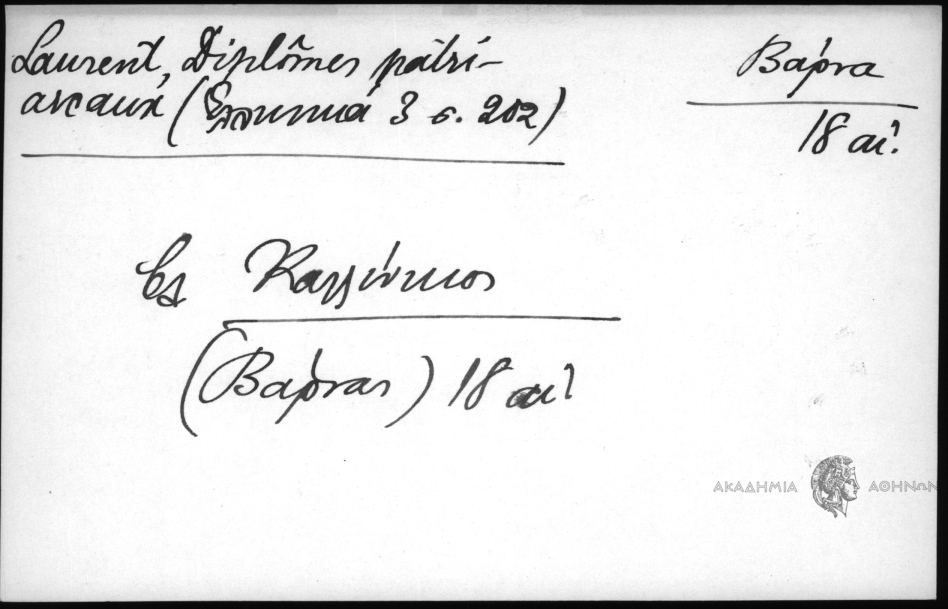 Laurent, Diplômes patri-
arcaux (Ἑλληνικά 3 σ. 202)
Βάρνα
18 αἰ.
βλ Καλλίνικος
(Βάρνας) 18 αἰ
ΑΚΑΔΗΜΙΑ ΑΘΗΝΩΝ